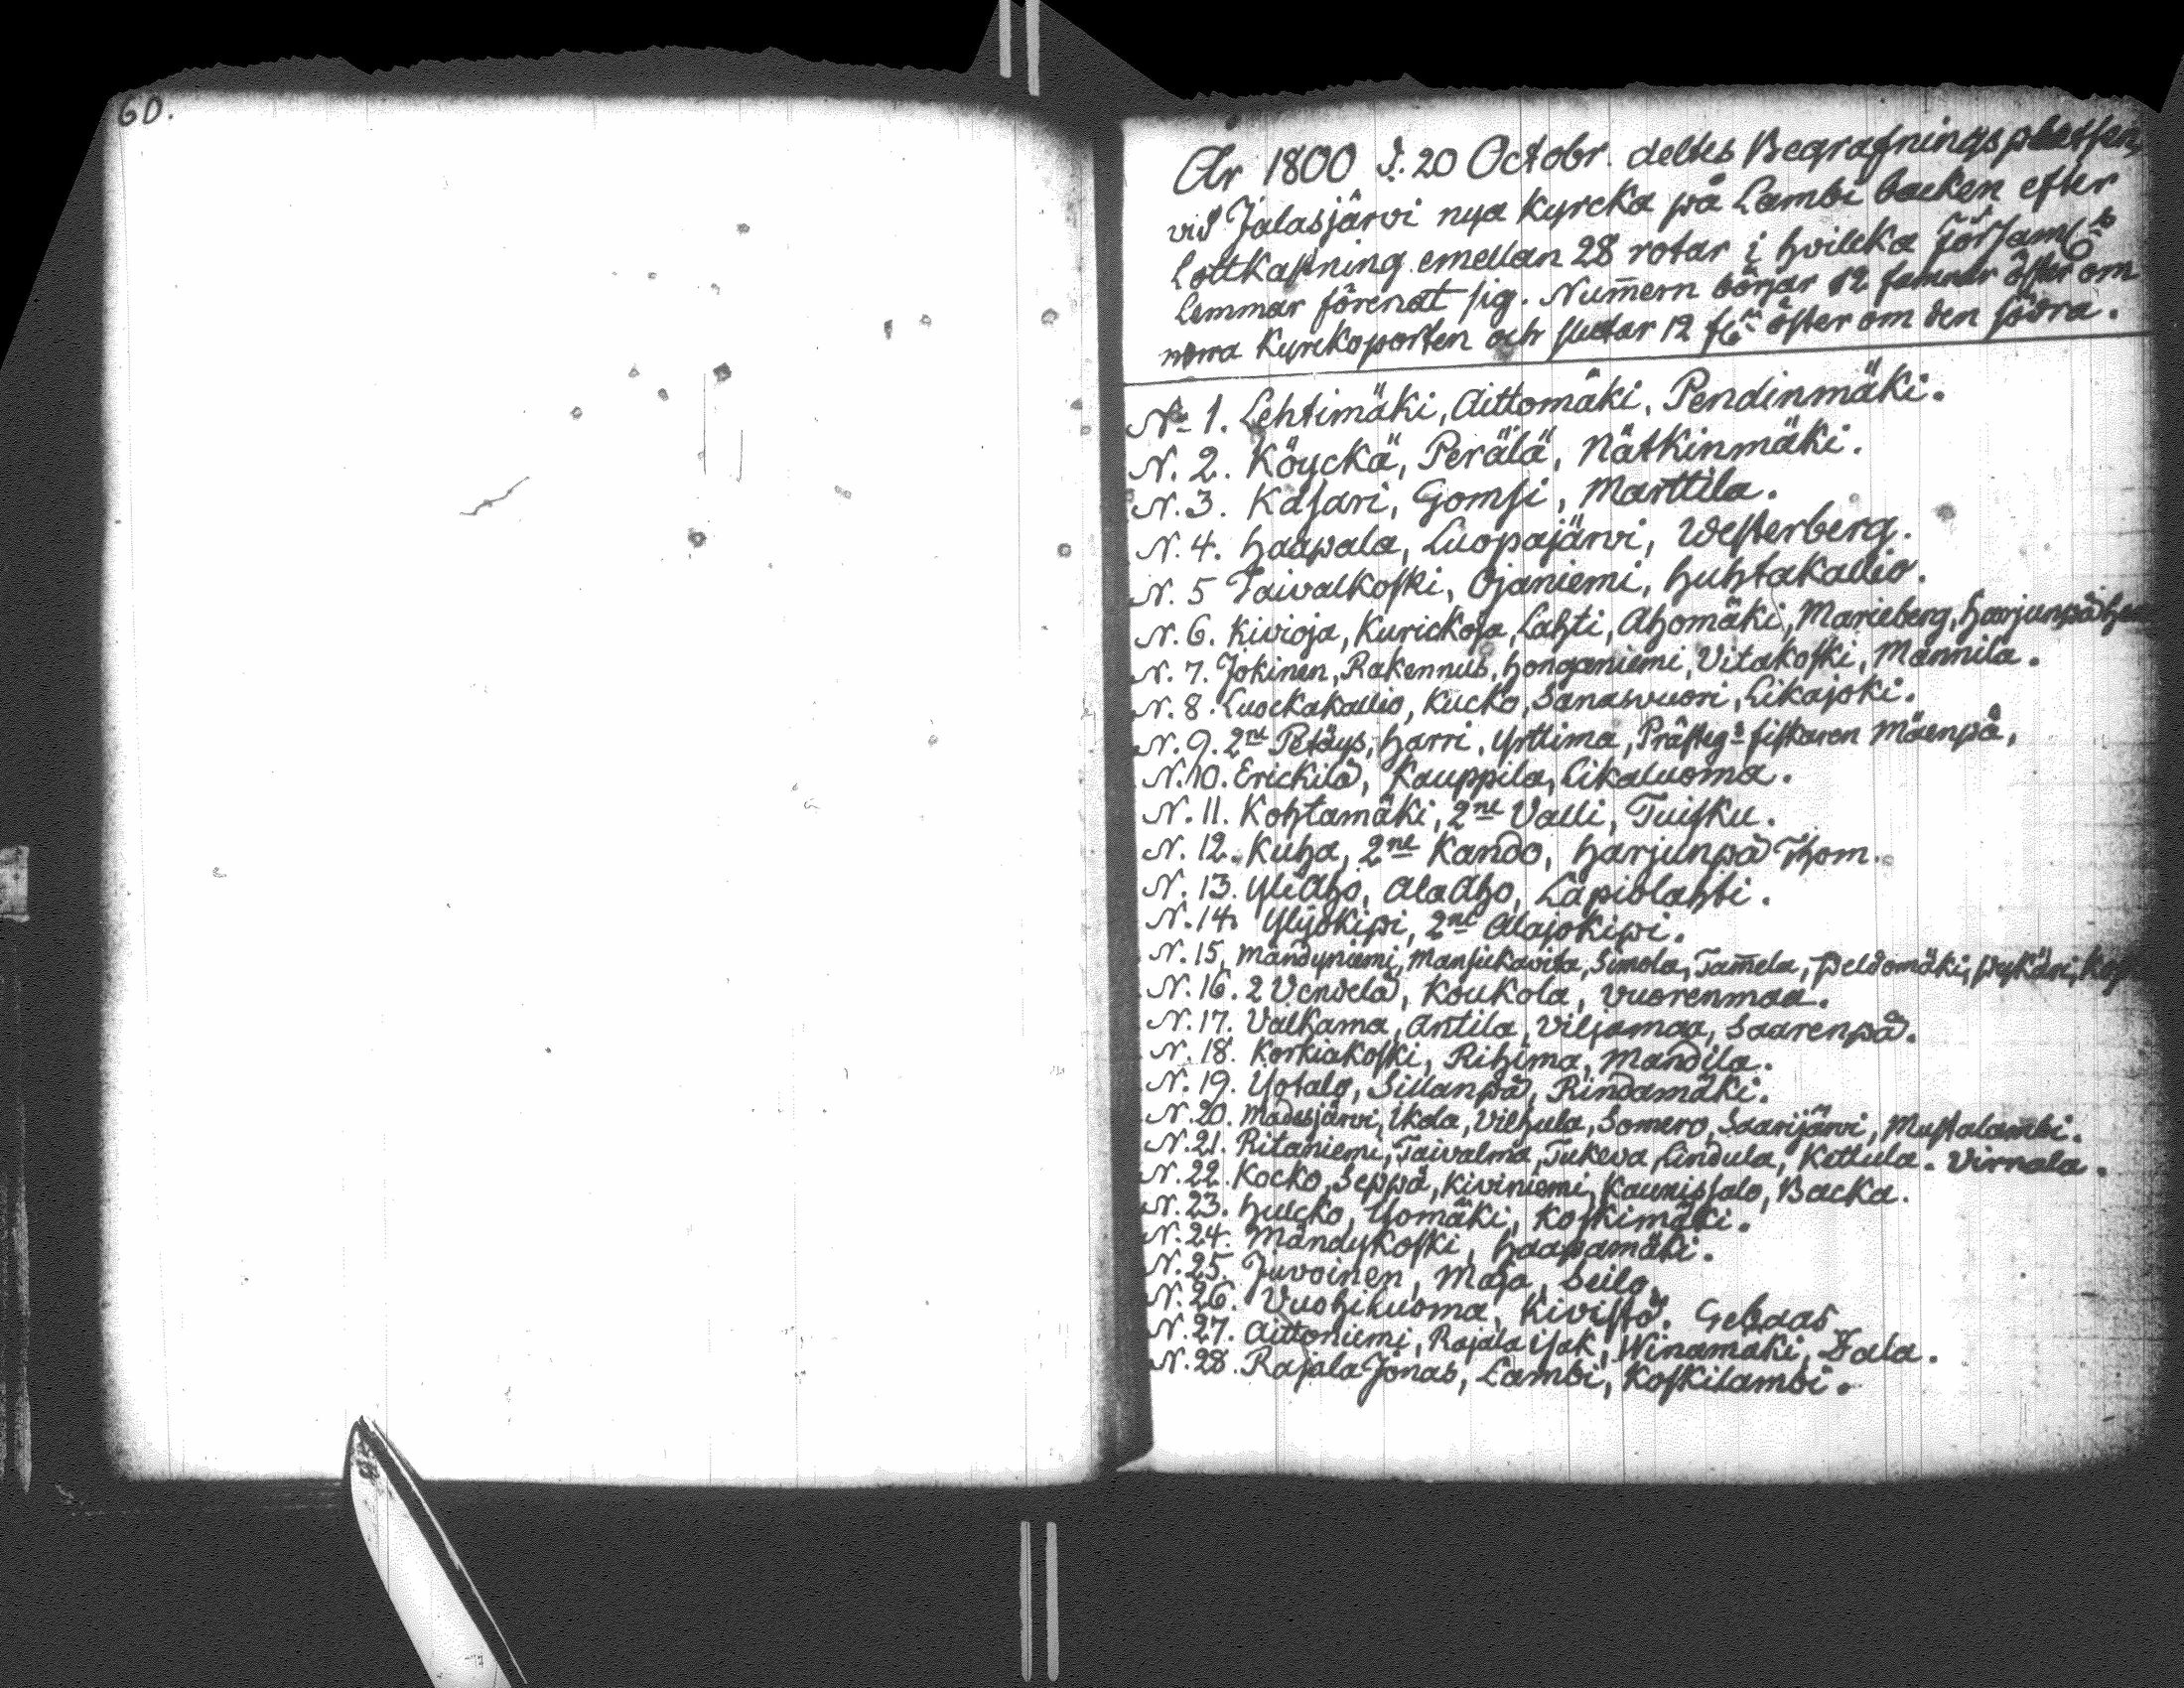 60.
År 1800 d. 20 Octobr. deltes Begrafningsplatsen
vid Jalasjärvi nya Kyrcka på Lambi backen efter
Lottkastning emellan 28 rotar i hvilcka
Lemmar förenat sig. Numern börjar 12 famnar öster om
norra Kyrckoporten och slutar 12 öster om den södra.
No 1. Lehtimäki, Aittomäki, Pendinmäki.
N. 2. Köyckä, Perälä, Nätkinmäki.
N. 3. Kasari, Gomsi, Marttila.
N. 4. Haapala, Luopajärvi, Westerberg.
N. 5 Taivalkoski, Ojaniemi, Huhtakallio.
N. 6. Kivioja, Kurickoja, Lahti, Ahomäki, Marieberg, Harjunpä
N. 7. Jokinen, Rakennus, Honganiemi, Vitakoski, Mannila.
N. 8. Luockakallio, Kucko, Sanasvuori, Likajoki.
N. 9. 2ne Petäys, Harri, Yrttima, Prästeg:s fiskaren Mäenpä,
N. 10. Erickilä, Kauppila, Likaluoma.
N. 11. Kohtamäki, 2ne Valli, Tuisku.
N. 12. Kuha, 2ne Kando, Harjunpä Thom.
N. 13. YliAho, AlaAho, Lapiolahti.
N. 14. Ylijokipi, 2ne Alajokipi.
N. 15. Mändyniemi, Mansickavita, Simola, Tamela, Peldomäki,
N. 16. 2 Vendelä, Koukola, Vuorenmaa.
N. 17. Valkama, Antila, Viljamaa, Saarenpä.
N. 18. Korkiakoski, Rihima, Mandila.
N. 19. Yotalo, Sillanpä, Rindamäki.
N. 20. Madesjärvi, Ikola, Vilhula, Somero, Saarijärvi, Mustalambi.
N. 21. Ritaniemi, Taivalma, Tukeva, Lindula, Kettula. Virnala.
N. 22. Kocko, Seppä, Kiviniemi, Kaunissalo, Backa.
N. 23. Hulcko, Yomäki, Koskimäki.
N. 24. Mändykoski, Haapamäki.
N. 25. Juvoinen, Maja, Seilo.
N. 26. Vuohiluoma, Kivistö. Gebaas
N. 27. Aittoniemi, Rajala Isak, Winamäki, Zala.
N. 28. Rajala Jonas, Lambi, Koskilambi.